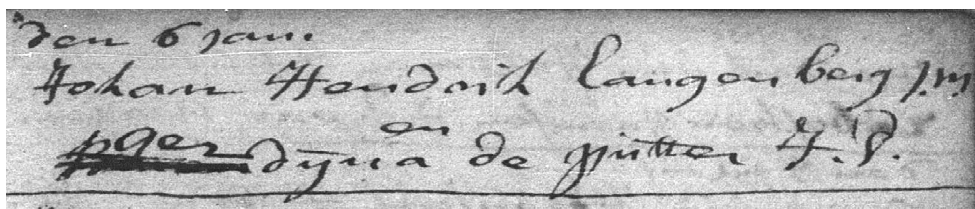 den 6 janu
Johan Hendrik Langenberg j.m.
en
Gerdyna de Pütter J.D.